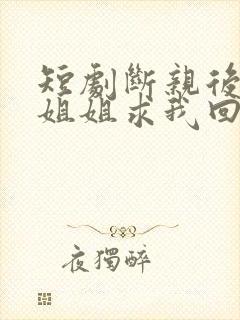 短劇斷親後
姐姐求我回
夜獨醉